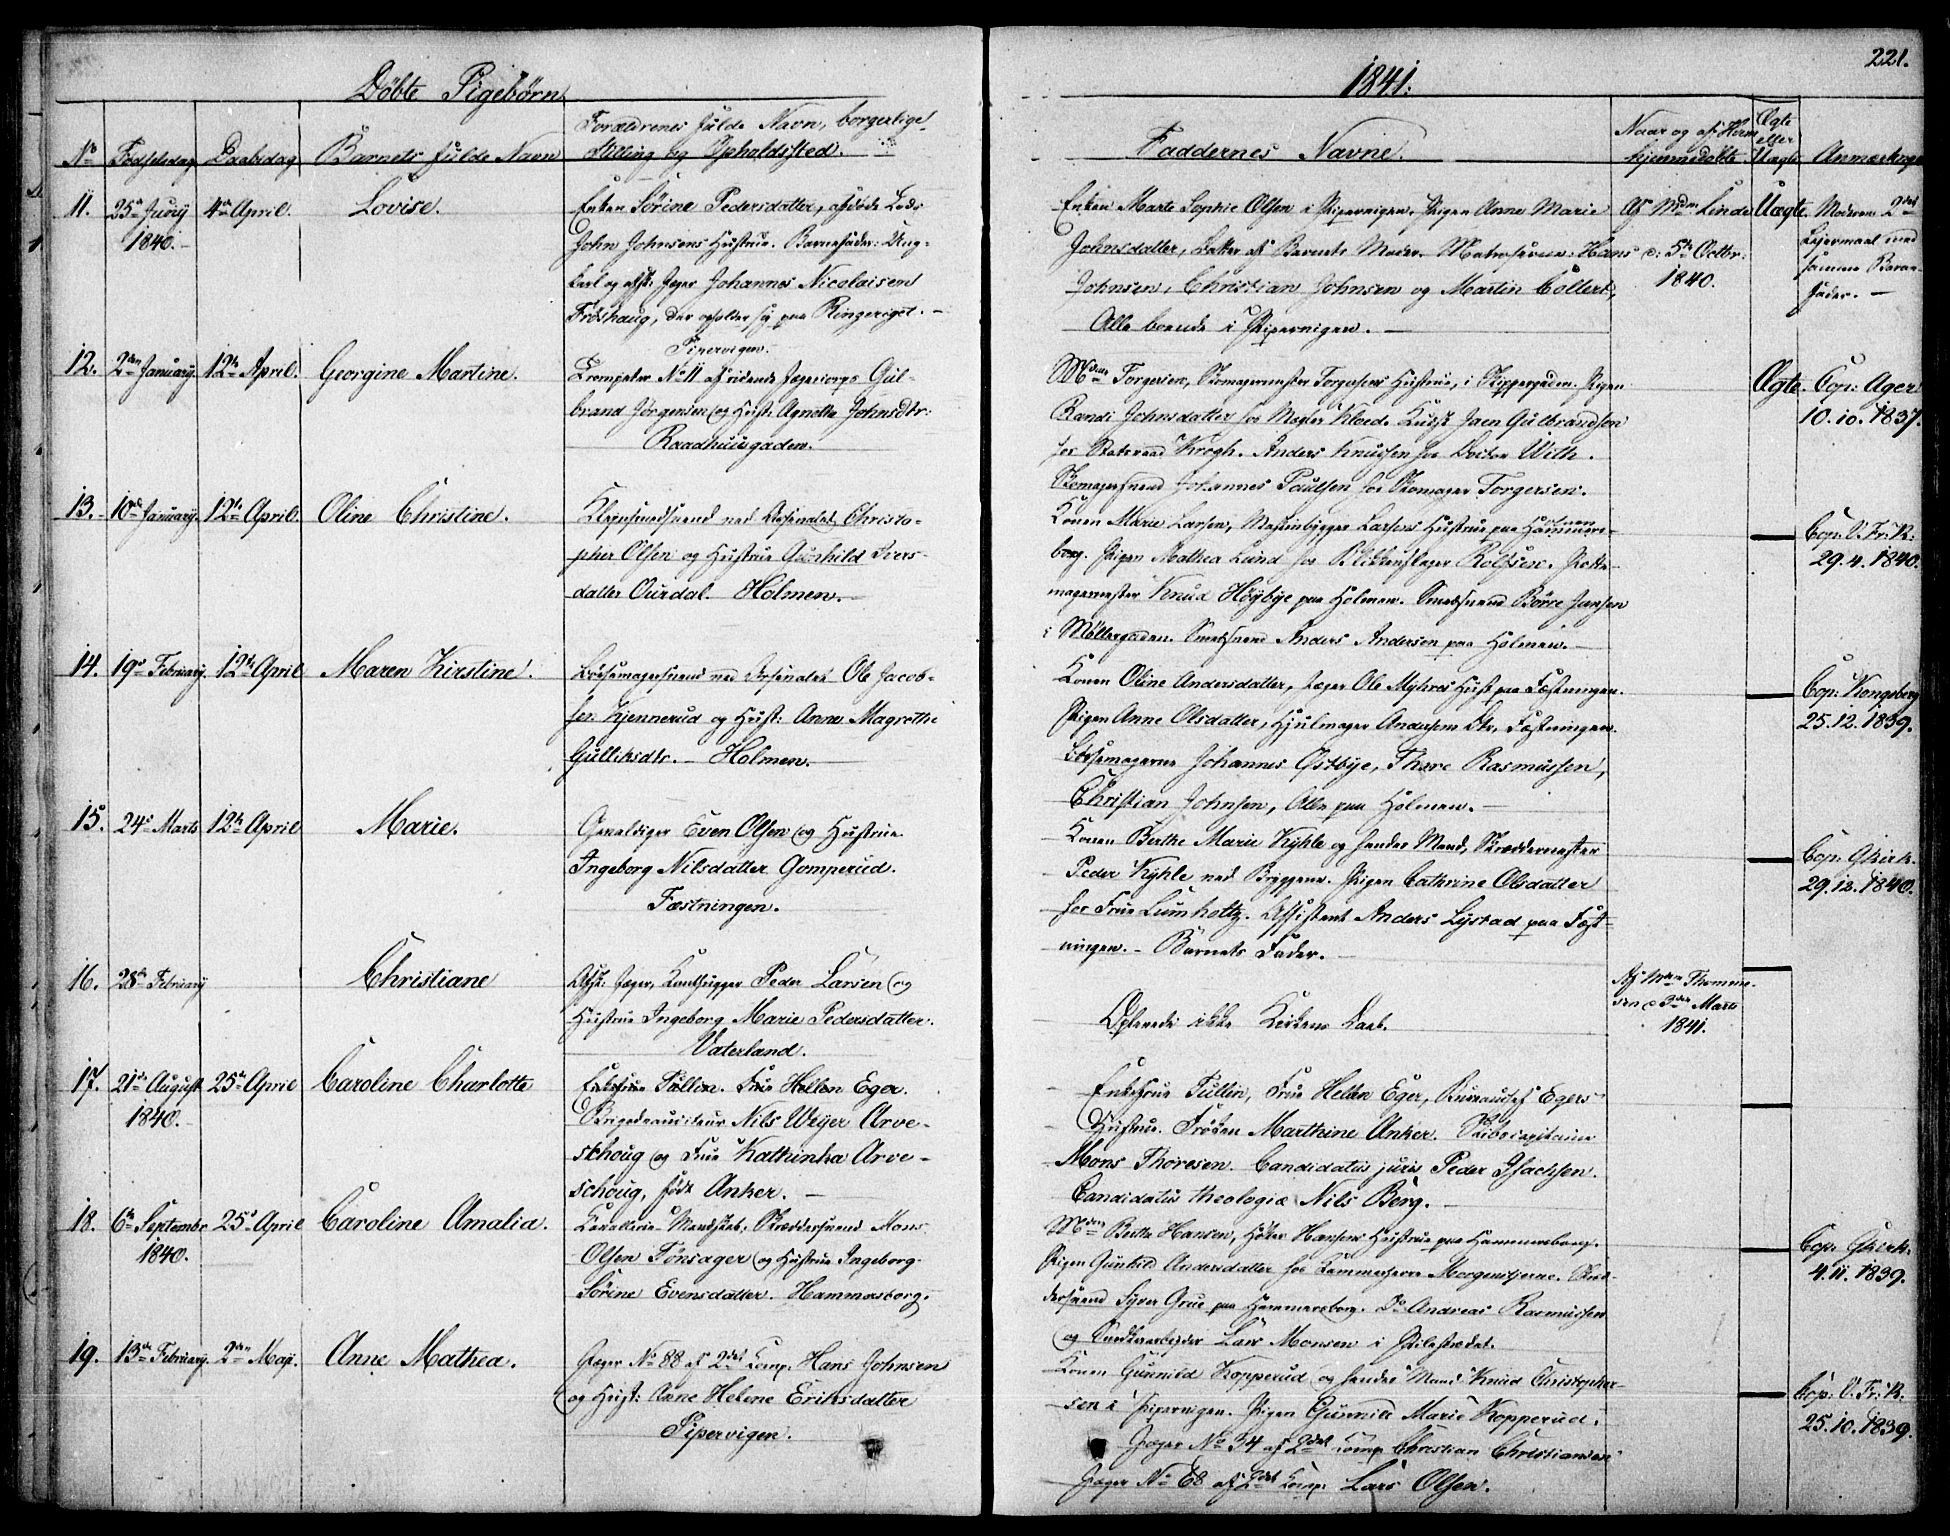 221.
Döbte Pigebørn
1841.
No
Fødselsdag
Daabsdag
Barnets fulde Navn
Forældrenes fulde Navn, borgerlige
Stilling og Opholdssted.
Faddernes Navne.
Naar og af Hvem
hjemmedøbte
Ægte
eller
Uægte
11.
25de Juny
1840.
4de April.
Lovise.
Enken Sörine Pedersdatter, afdøde Lods
John Johnsens Hustrue. Barnefader: Ung-
karl og afsk: Jæger Johannes Nicolaisen
Fröshaug, der opholder sig paa Ringeriget.
Enken Marte Sophie Olsen i Pipervigen. Pigen Anne Marie
Johnsdatter, Datter af Barnets Moder. Matroserne: Hans
Johnsen, Christian Johnsen og Martin Collert,
Alle boende i Pipervigen.
Af Mdm Linde
d: 5te Octbr:
1840.
Uægte
Moderen 2det
Leiermaal med
samme Barne-
fader.
12.
2den January.
12te April.
Georgine Martine.
Pipervigen.
Trompeter No 11 af ridende Jægercorps Gul-
brand Jörgensen og Hust: Agnethe Johnsdtr:
Raadhuusgaden.
Mdme Torgersen, Skomagermester Torgersens Hustrue, i Skippergaden. Pigen
Randi Johnsdatter hos Mægler Kloed. Kudsk Jaen Gulbrandsen
hos Statsraad Krogh. Anders Knudsen hos Doctor With.
Skomagersvend Johannes Paulsen hos Skomager Torgersen.
Ægte.
Cop: Ager
10.10.1837.
13.
10de January.
12te April.
Oline Christine.
Kleinsmedsvend ved Arsenalet Christo-
pher Olsen og Hustrue Gunhild Ivers-
datter Ourdal. Holmen.
Konen Marie Larsen, Maskinbygger Larsens Hustrue paa Hammers-
borg. Pigen Mathea Lund hos Blikkenslager Rolfsen. Potte-
magermester Knud Höybye paa Holmen. Smedsvend Börre Jansen
i Møllergaden. Smedsvend Anders Andersen paa Holmen.
Cop: V. Fr: K:
29.4.1840.
14.
19de February.
12te April
Maren Kirstine.
Bössemagersvend ved Arsenalet Ole Jacob-
sen Kjennerud og Hust: Anne Magrethe
Gulliksdtr. Holmen.
Konen Oline Andersdatter, Jæger Ole Myhres Hust: paa Fæstningen.
Pigen Anne Olsdatter, Hjulmager Andersens Dtr, Fæstningen.
Bössemagerne Johannes Östbye, Thore Rasmussen,
Christian Johnsen, Alle paa Holmen.
Cop: Kongsberg
25.12.1839.
15.
24de Marts
12te April
Marie.
Gevaldiger Even Olsen og Hustrue
Ingeborg Nilsdatter Gomperud.
Fæstningen.
Konen Berthe Marie Kyhle og hendes Mand, Skræddermester
Peder Kyhle ved Bryggen. Pigen Cathrine Olsdatter
hos Frue Lumholtz. Assistent Anders Lystad paa Fæst-
ningen. Barnets Fader.
Cop: Gkirk.
29.12.1840.
16.
28de February
Christiane
Afsk: Jæger, Kandsugger Peder Larsen og
Hustrue Ingeborg Marie Pedersdatter.
Vaterland.
Oplevede ikke Kirkens Daab.
Af Mdme Thomme-
sen d 3die Marts
1841.
17.
21de August
1840.
25de April
Caroline Charlotte
Enkefrue Tullin. Frue Hellen Eger.
Brigadeauditeur Nils Weyer Arve-
schoug og Frue Kathinka Arve-
schoug, født Anker.
Enkefrue Tullin, Frue Hellen Eger, Bureauchef Egers
Hustrue. Fröken Marthine Anker. Skibscapitaine
Mons Thoresen. Candidatus juris Peder Isachsen.
Candidatus theologiæ Nils Berg.
18.
6te Septembr
1840.
25de April
Caroline Amalia.
Cavallerie-Mandskab, Skræddersvend Mons
Olsen Tönsager og Hustrue Ingeborg
Sörine Evensdatter. Hammersborg.
Mdme Berthe Hansen, Høker Hansens Hustrue paa Hammersborg.
Pigen Gunhild Andersdatter hos Kammerherre Morgenstjerne. Skræd-
dersvend Syver Grue paa Hammersborg. Do Andreas Rasmussen
og Lars Monsen i Pilestrædet.
Cop: Gkirk.
4.11.1839.
19.
13de February.
2den Maji.
Anne Mathea.
Jæger No 88 af 2det Comp. Hans Johnsen
og Hust: Anne Helene Eriksdatter
Pipervigen.
Konen Gunnild Kopperud og hendes Mand Knud Christopher-
sen i Pipervigen. Pigen Gunnild Marie Kopperud.
Jæger No 34 af 2det Comp Christian Christiansen
Jæger No 68 af 2det Comp. Lars Olsen.
Cop: V. Fr: K:
25.10.1839.